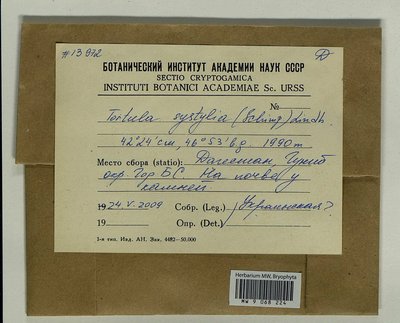 #13972
БОТАНИЧЕСКИЙ ИНСТИТУТ АКАДЕМИИ НАУК СССР
SECTIO CRYPTOGAMICA
INSTITUTI BOTANICI ACADEMIAE Sc. URSS
№
Tortula systylia (Schimp.) Lindb.
42°24' с.ш, 46°53' в.д. 1990 m
Место сбора (statio): Дагестан, Гуниб
окр. Гор БС. На почве у
камней
1924.V.2009 Собр. (Leg.) Украинская?
19 Опр. (Det.)
1-я тип. Изд. АН. Зак. 4482—50.000
Herbarium MW, Bryophyta
MW 9 068 224